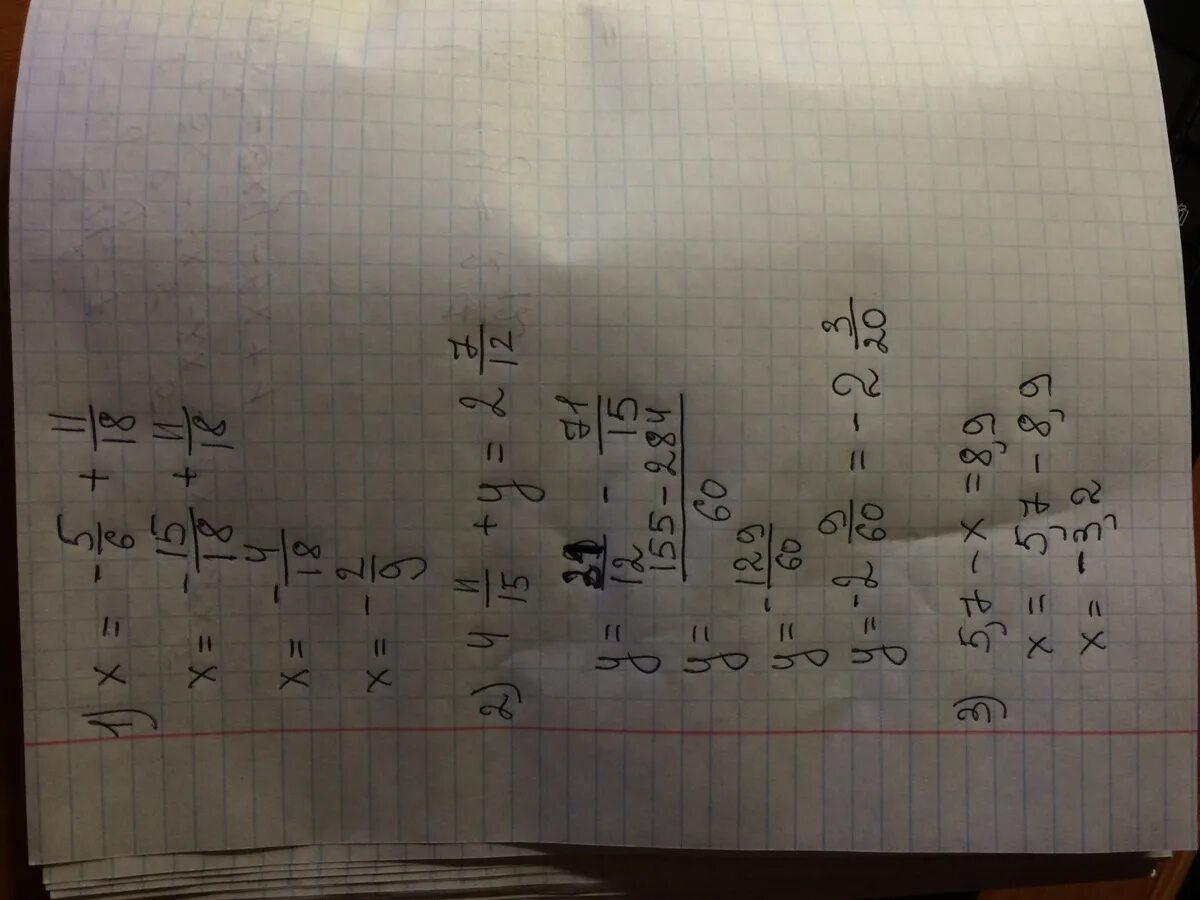 1) x = -5/6 + 11/18
x = -15/18 + 11/18
x = -4/18
x = -2/9
2) 4 11/15 + y = 2 7/12
y = 31/12 - 71/15
y = 155-284/60
y = -129/60
y = -2 9/60 = -2 3/20
3) 5,7 - x = 8,9
x = 5,7 - 8,9
x = -3,2